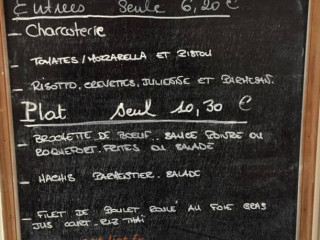 Entrées Seule 6,20 €
- Charcuterie
- TOMATES/MOZZARELLA ET PISTOU
- RISOTTO, CREVETTES, JULIENNE ET PARMESAN.
Plat Seul 10,30 €
- BROCHETTE DE BOEUF.. SAUCE POIVRE OU
ROQUEFORT. FRITES OU SALADE
- HACHIS PARMENTIER. SALADE
- FILET DE POULET ROULÉ AU FOIE GRAS
JUS COURT. RIZ THAÏ